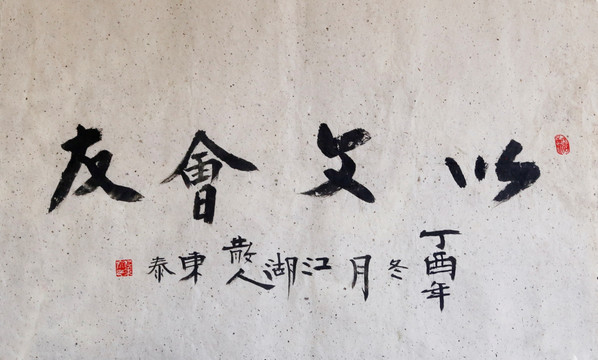 以文會友
丁酉年冬月江湖散人東泰